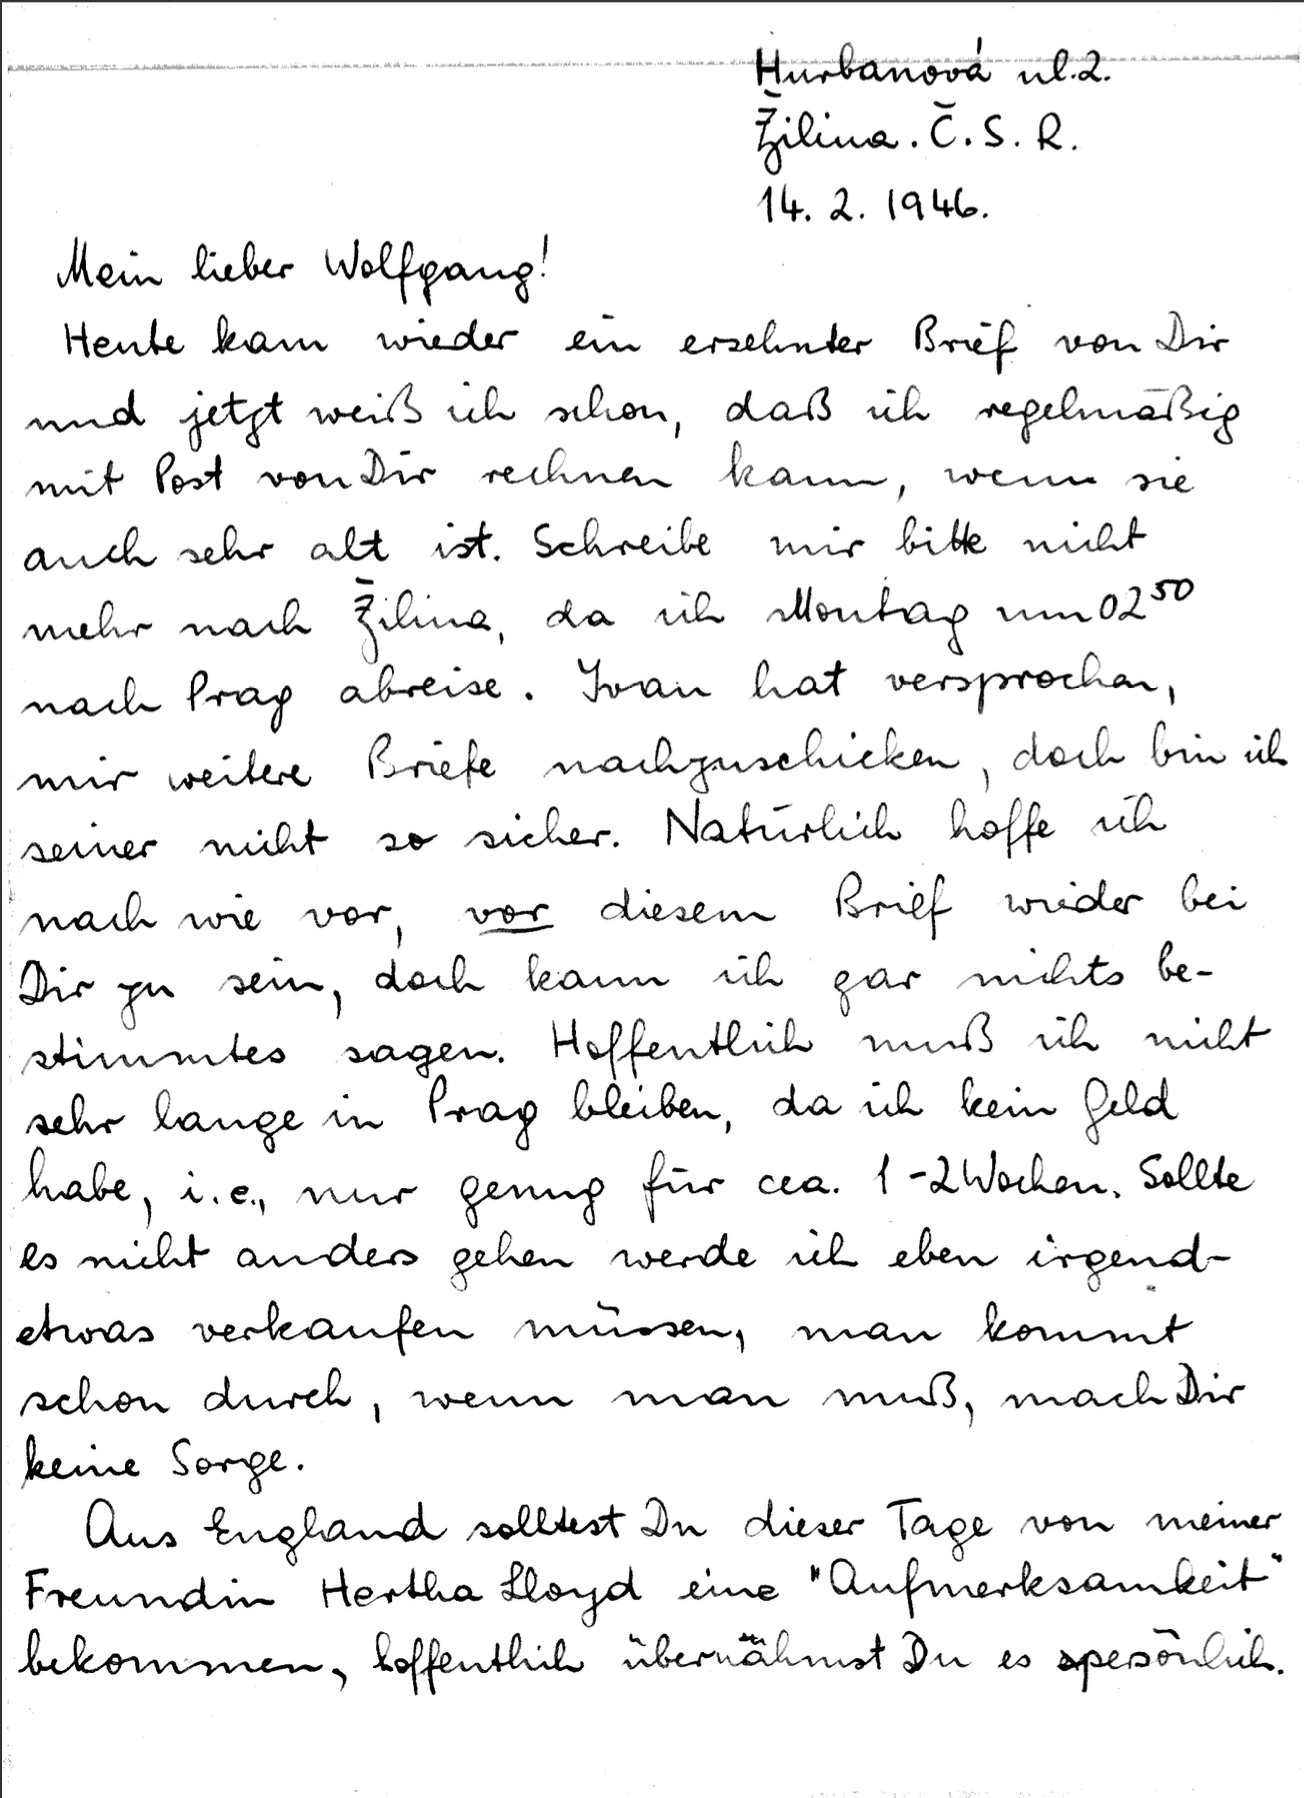 Hurbanová ul.2.
Žilina. Č. S. R.
14. 2. 1946.
Mein lieber Wolfgang!
Heute kam wieder ein ersehnter Brief von Dir
und jetzt weiß ich schon, daß ich regelmäßig
mit Post von Dir rechnen kann, wenn sie
auch sehr alt ist. Schreibe mir bitte nicht
mehr nach Žilina, da ich Montag um 02⁵⁰
nach Prag abreise. Ivan hat versprochen,
mir weitere Briefe nachzuschicken, doch bin ich
seiner nicht so sicher. Natürlich hoffe ich
nach wie vor, vor diesem Brief wieder bei
Dir zu sein, doch kann ich gar nichts be-
stimmtes sagen. Hoffentlich muß ich nicht
sehr lange in Prag bleiben, da ich kein Geld
habe, i.e., nur genug für cca. 1-2 Wochen. Sollte
es nicht anders gehen werde ich eben irgend-
etwas verkaufen müssen, man kommt
schon durch, wenn man muß, mach Dir
keine Sorge.
Aus England solltest Du dieser Tage von meiner
Freundin Hertha Lloyd eine "Aufmerksamkeit"
bekommen, hoffentlich übernähmst Du es persönlich.